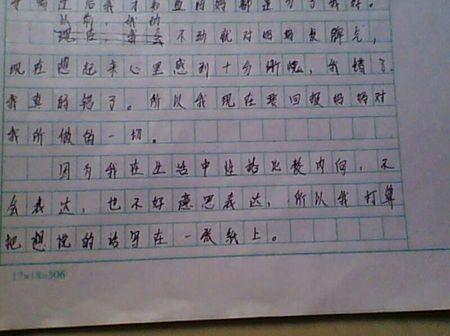 过后我才知道妈妈都是为了我好。
以前，我动
不动就对妈妈发脾气，
现在想起来心里感到十分惭愧，我错了，
我真的错了。所以我现在要回报妈妈对
我所做的一切。
因为我在生活中性格比较内向，不
会表达，也不好意思表达，所以我打算
把想说的话写在一张纸上。
17×18=306